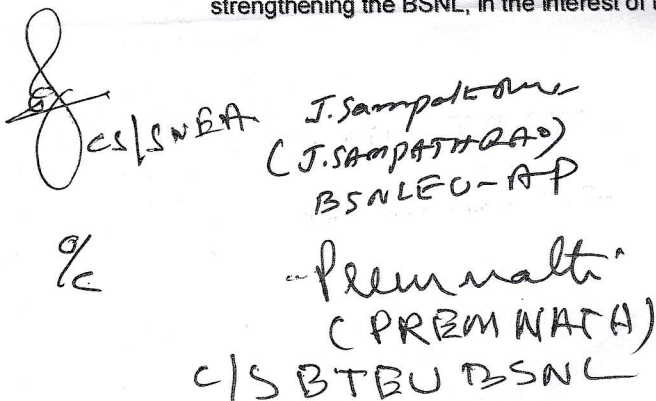 strengthening the BSNL, in the interest of
CS/SNEA
J. Sampath
(J. SAMPATHRAO)
BSNLEU-AP
O/C
Premnath
(PREM NATH)
C/S BTEU BSNL